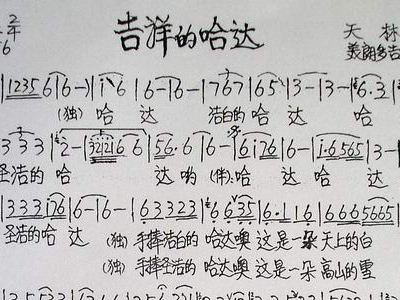 2/4 吉祥的哈达 天林
=6 美朗多吉
|1235 6|6-)|i 6|6-|6-|767|65|3-|3-|6.3|
(独) 哈 达 浩白的 哈 达 哈
333|2-|3212166|56.6|6-|6i76|6-|i.6565|3-|
圣洁的 哈 达 哟 (伴)哈 达 哈 达
|333i76|6-|6-|63323|6635|6.116|6665665|
圣洁的 哈 达 (独) 手捧洁白的 哈达噢 这是一朵 天上的白
(独) 手捧圣洁的 哈达噢 这是一朵 高山的雪